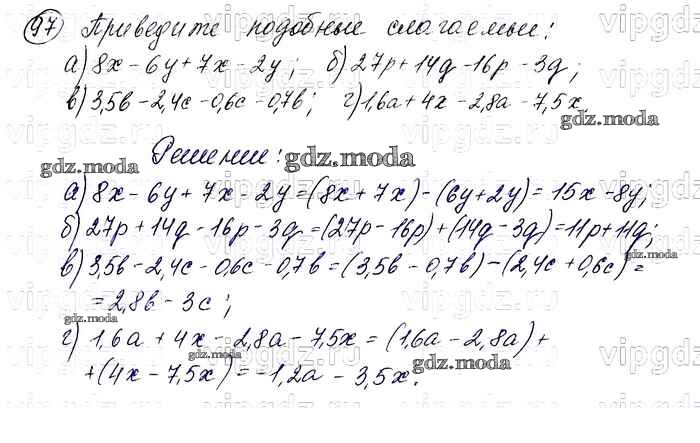 97 Приведите подобные слагаемые:
а) 8x - 6y + 7x - 2y; б) 27p + 14q - 16p - 3q;
в) 3,5b - 2,4c - 0,6c - 0,7b; г) 1,6a + 4x - 2,8a - 7,5x
gdz.moda
Решение: gdz.moda
а) 8x - 6y + 7x - 2y = (8x + 7x) - (6y + 2y) = 15x - 8y;
б) 27p + 14q - 16p - 3q = (27p - 16p) + (14q - 3q) = 11p + 11q;
в) 3,5b - 2,4c - 0,6c - 0,7b = (3,5b - 0,7b) - (2,4c + 0,6c) =
gdz.moda
= 2,8b - 3c;
gdz.moda
г) 1,6a + 4x - 2,8a - 7,5x = (1,6a - 2,8a) +
gdz.moda gdz.moda
+ (4x - 7,5x) = -1,2a - 3,5x.